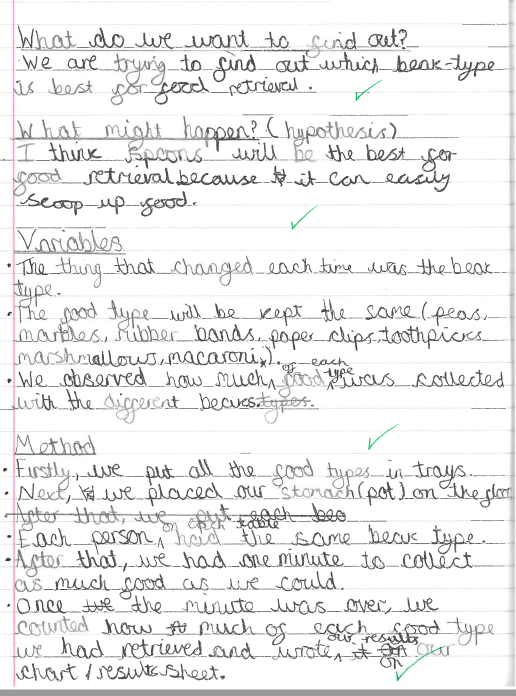 What do we want to find out?
We are trying to find out which beak-type
is best for food retrieval.
What might happen? (hypothesis)
I think spoons will be the best for
food retrieval because it can easily
scoop up food.
Variables
• The thing that changed each time was the beak
type.
• The food type will be kept the same (peas,
marbles, rubber bands, paper clips, toothpicks
marshmallows, macaroni).
• We observed how much of each food type was collected
with the different beaks. types.
Method
• Firstly, we put all the food types in trays.
• Next, we placed our stomach (pot) on the floor
After that, we put each bea
• Each person, on each table had the same beak type.
• After that, we had one minute to collect
as much food as we could.
• Once the the minute was over, we
counted how much of each food type
we had retrieved and wrote our results on our
chart / results sheet.